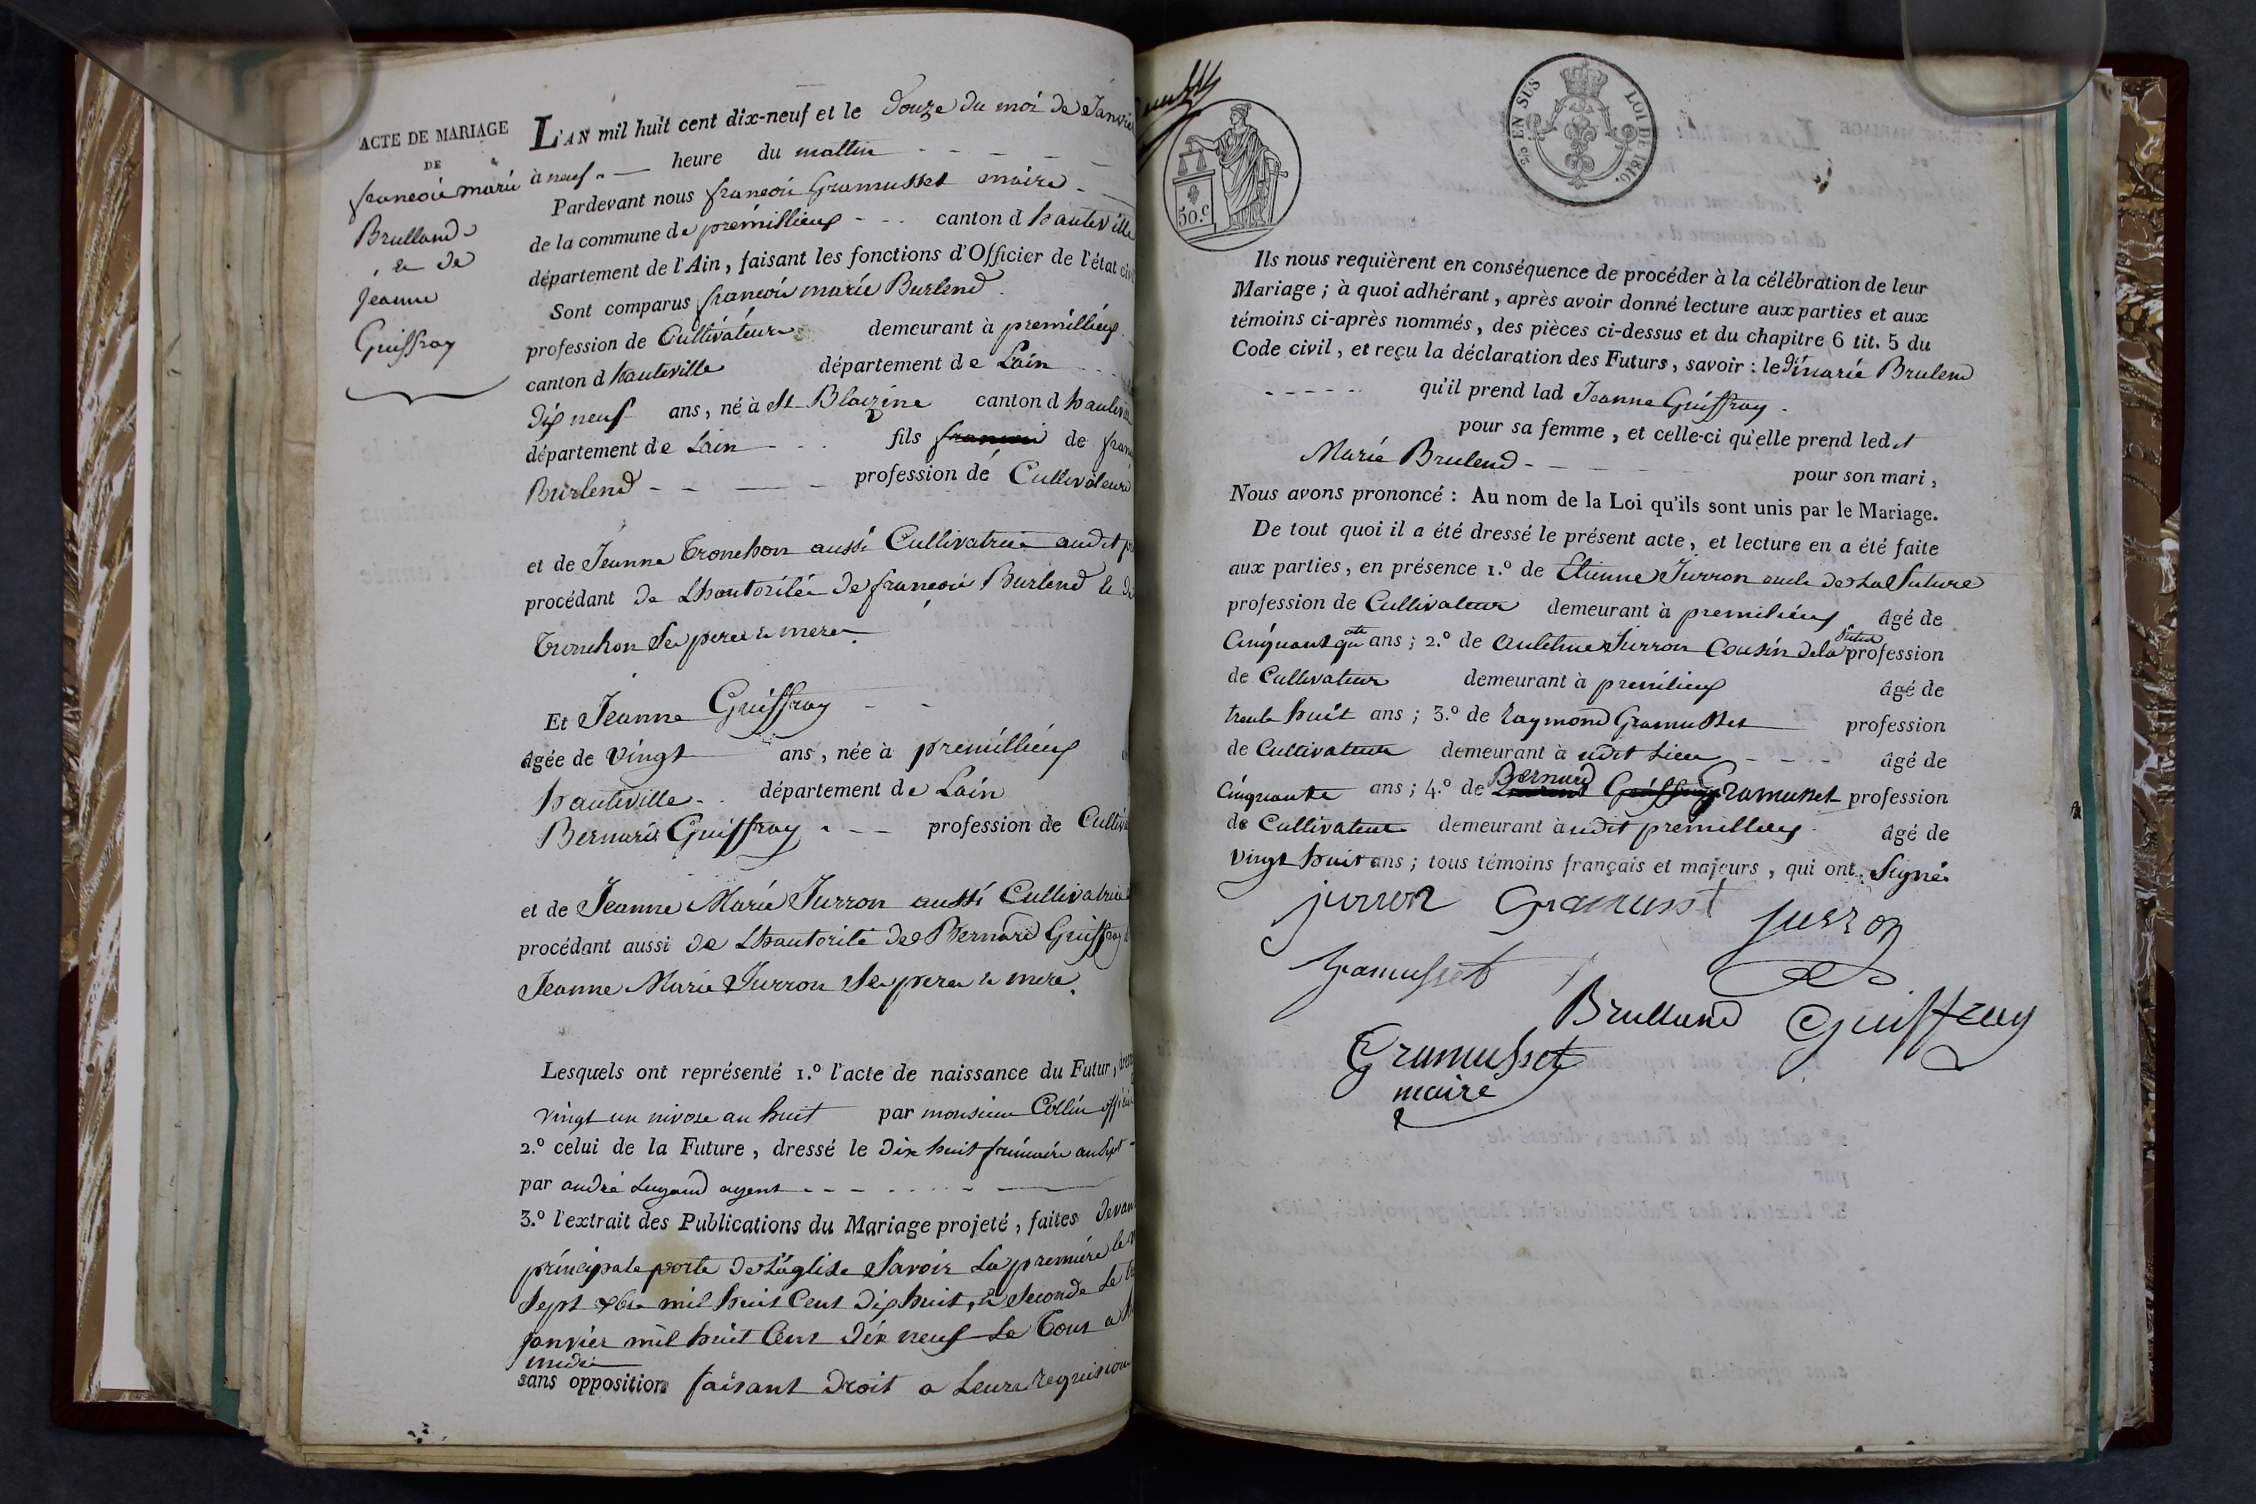 ACTE DE MARIAGE
DE
francois marie
Brulland
& de
Jeanne
Guiffray
L'AN mil huit cent dix-neuf et le Douze du moi de Janvier
à neuf heure du mattin
Pardevant nous francois Gramusset maire
de la commune de premillieux canton d hauteville
département de l'Ain, faisant les fonctions d'Officier de l'état civil
Sont comparus francois marie Burlend
profession de Cultivateur demeurant à premillieux
canton d hauteville département de Lain
Dix neuf ans, né à St Blaizine canton d hauteville
département de Lain fils francoi de
Burlend profession de Cultivateur
et de Jeanne Tronchon aussi Cultivatrice audit
procédant de Lhautorité de francoi Burlend &
Tronchon Se peres & mere
Et Jeanne Guiffray
âgée de vingt ans, née à premillieux
hauteville département de Lain
Bernard Guiffray profession de
et de Jeanne Marie Jurron aussi Cultivatrice
procédant aussi de Lhautorité de Bernard Guiffray
Jeanne Marie Jurron Se peres & mere.
Lesquels ont représenté 1.º l'acte de naissance du Futur,
vingt un nivose an huit par monsieur Collin
2.º celui de la Future, dressé le Dix huit frimaire an Sept
par andré Lugand agent
3.º l'extrait des Publications du Mariage projeté, faites devant
principale porte de Láglise Savoir La premiere le
Sept xbre mil huit Cent Dix huit, & Seconde Le
janvier mil huit Cent Dix neuf Le Tout a
midi
sans opposition faisant Droit a Leurs requision
50.c
20 EN SUS LOI DE 1816.
Ils nous requièrent en conséquence de procéder à la célébration de leur
Mariage; à quoi adhérant, après avoir donné lecture aux parties et aux
témoins ci-après nommés, des pièces ci-dessus et du chapitre 6 tit. 5 du
Code civil, et reçu la déclaration des Futurs, savoir: le Dt marie Brulend
qu'il prend lad Jeanne Guiffray
pour sa femme, et celle-ci qu'elle prend led t
Marie Brulend pour son mari,
Nous avons prononcé: Au nom de la Loi qu'ils sont unis par le Mariage.
De tout quoi il a été dressé le présent acte, et lecture en a été faite
aux parties, en présence 1.º de Etienne Jurron oncle de La future
profession de Cultivateur demeurant à premilieux âgé de
Cinquant ans; 2.º de antelme Jurron Cousin de la future profession
de Cultivateur demeurant à premilieux âgé de
trente huit ans; 3.º de Raymond Gramusset profession
de Cultivateur demeurant à udit Lieu âgé de
Cinquante ans; 4.º de Bernard Guiffray Gramusset profession
de Cultivateur demeurant à udit premillieux âgé de
vingt huit ans; tous témoins français et majeurs, qui ont Signé
jurron Gramusst
Jurron
Gramusset
Brulland Guiffray
Gramusset
maire